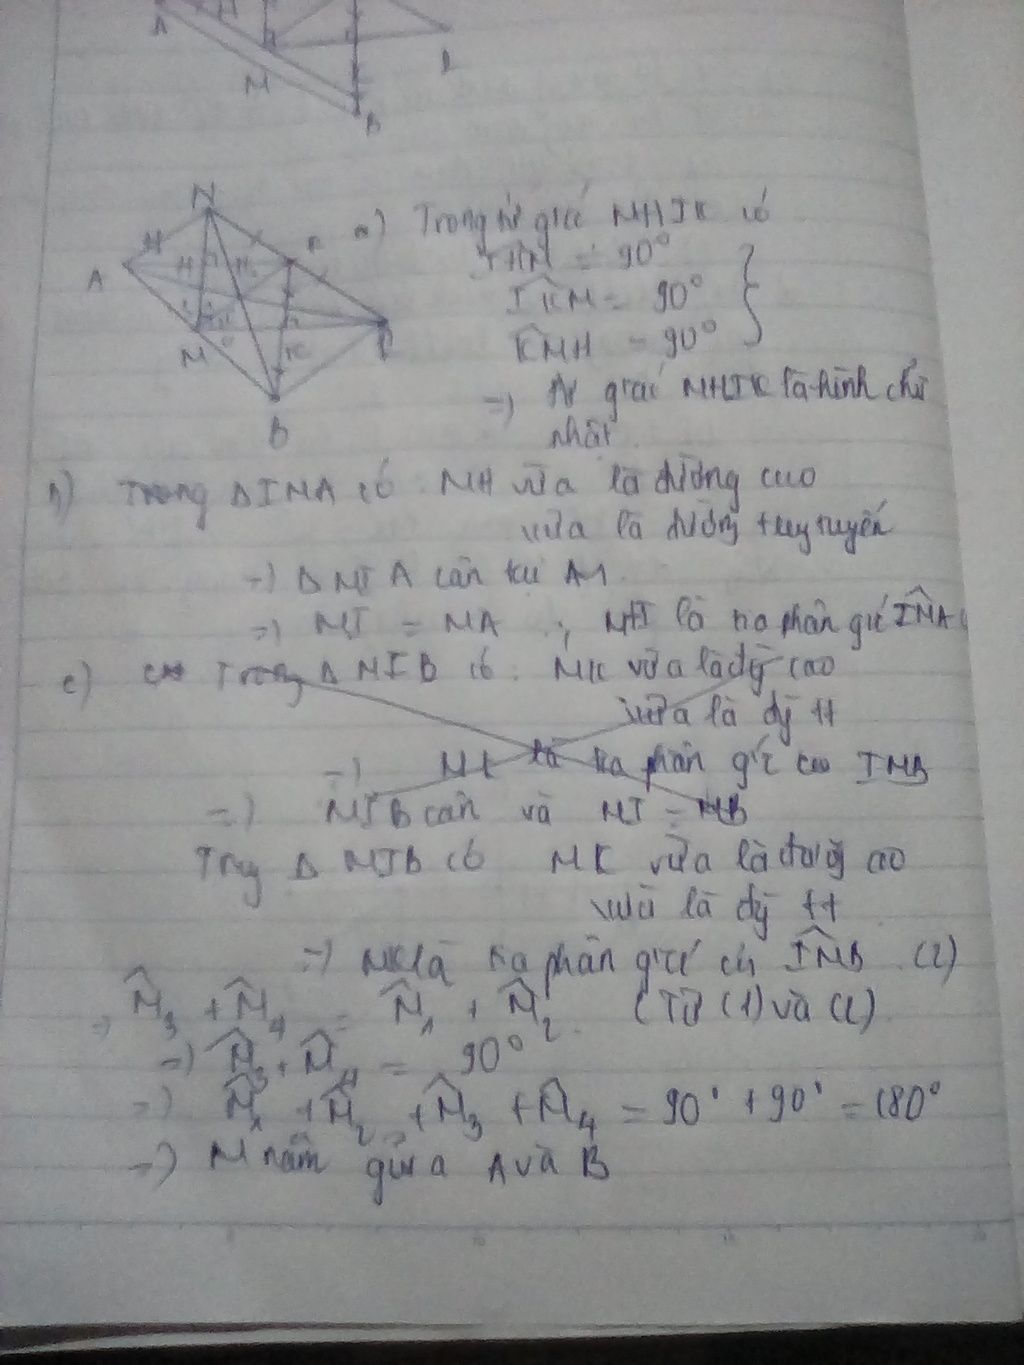 A
M
B
N
a) Trong tứ giác MHIK có
A
H
IHM = 90°
IKM = 90°
KMH = 90°
M
K
B
=) tứ giác MHIK là hình chữ
nhật
b) Trong ΔIMA có: MH vừa là đường cao
vừa là đường
=) Δ MIA cân tại M
=) MI = MA , MH là tia phân giác IMA
c) Trong Δ MIB có: MK vừa là đg cao
vừa là đg tt
=) MK là tia phân giác của IMB
=) MIB cân và MI = MB
Trg Δ MIB có MK vừa là đường cao
vừa là đg tt
=) MK là tia phân giác của IMB (2)
=) M̂3 + M̂4 = M̂1 + M̂2 (Từ (1) và (2)
=) M̂3 + M̂4 = 90°
=) M̂1 + M̂2 + M̂3 + M̂4 = 90° + 90° = 180°
=) M nằm giữa A và B